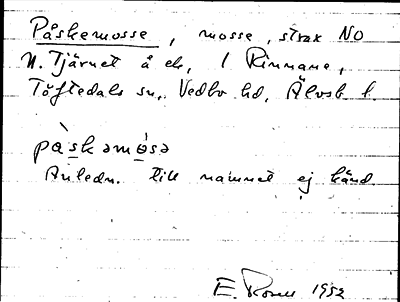 Påskemosse, mosse, strax NO
N. Tjärnet å ek, 1 Rinnane,
Töftedals sn, Vedbo hd, Älvsb l.
pàskəmòsə
Anledn. till namnet ej känd
E. 1952